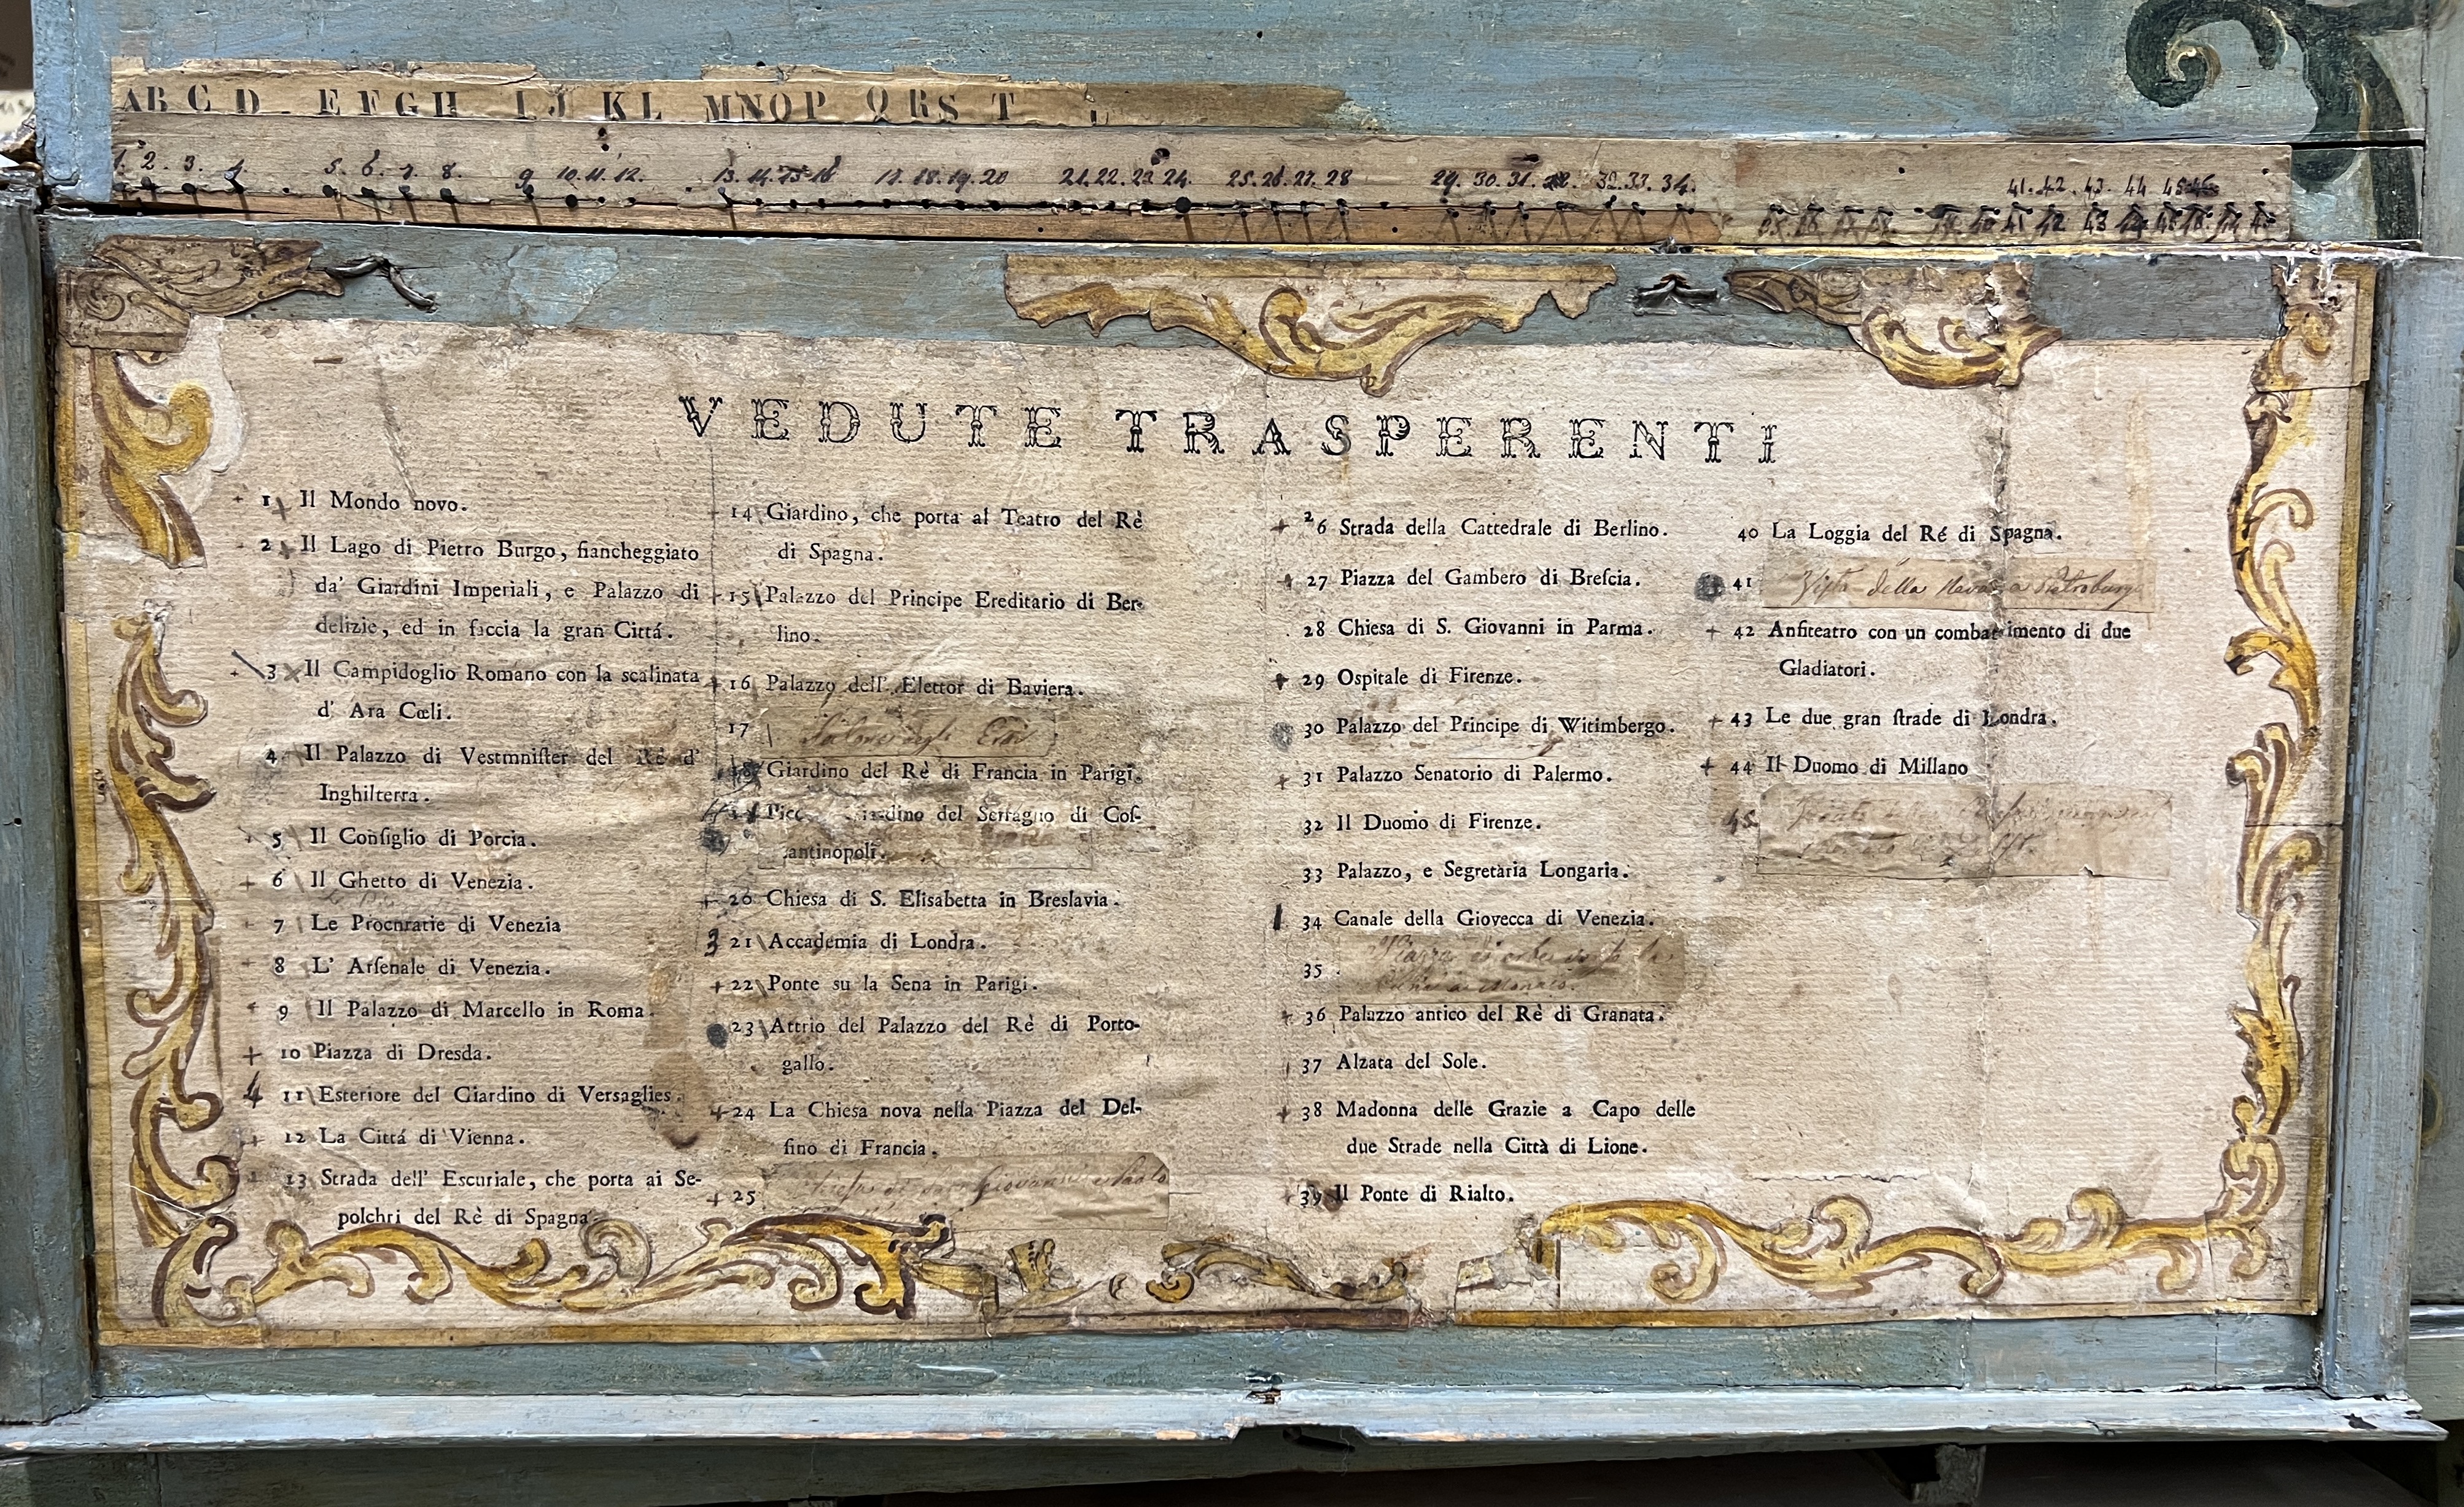 AB C D E F G H I J K L M N O P Q R S T
1. 2. 3. 4. 5. 6. 7. 8. 9 10. 11. 12. 13. 14. 15. 16 17. 18. 19. 20 21. 22. 23 24. 25. 26. 27. 28 29. 30. 31. 32. 33. 34. 41. 42. 43. 44 45
41 42 43
VEDUTE TRASPERENTI
1 Il Mondo novo.
2 Il Lago di Pietro Burgo, fiancheggiato
da' Giardini Imperiali, e Palazzo di
delizie, ed in faccia la gran Cittá.
3 Il Campidoglio Romano con la scalinata
d' Ara Cœli.
4 Il Palazzo di Vestmnister del Rè d'
Inghilterra.
5 Il Consiglio di Porcia.
6 Il Ghetto di Venezia.
7 Le Procnratie di Venezia
8 L' Arsenale di Venezia.
9 Il Palazzo di Marcello in Roma.
10 Piazza di Dresda.
4 11 Esteriore del Giardino di Versaglies.
12 La Cittá di Vienna.
13 Strada dell' Escuriale, che porta ai Se-
polchri del Rè di Spagna
14 Giardino, che porta al Teatro del Rè
di Spagna.
15 Palazzo del Principe Ereditario di Ber-
lino.
16 Palazzo dell' Elettor di Baviera.
17
18 Giardino del Rè di Francia in Parigi.
del Serraglio di Cos-
antinopoli.
20 Chiesa di S. Elisabetta in Breslavia.
3 21 Accademia di Londra.
22 Ponte su la Sena in Parigi.
23 Attrio del Palazzo del Rè di Porto-
gallo.
24 La Chiesa nova nella Piazza del Del-
fino di Francia.
25 Chiesa di Giovanni e Paolo
26 Strada della Cattedrale di Berlino.
27 Piazza del Gambero di Brescia.
28 Chiesa di S. Giovanni in Parma.
29 Ospitale di Firenze.
30 Palazzo del Principe di Witimbergo.
31 Palazzo Senatorio di Palermo.
32 Il Duomo di Firenze.
33 Palazzo, e Segretària Longaria.
34 Canale della Giovecca di Venezia.
35
36 Palazzo antico del Rè di Granata.
37 Alzata del Sole.
38 Madonna delle Grazie a Capo delle
due Strade nella Città di Lione.
39 Il Ponte di Rialto.
40 La Loggia del Ré di Spagna.
41 Vista della Neva a Pietroburgo
42 Anfiteatro con un combattimento di due
Gladiatori.
43 Le due gran strade di Londra.
44 Il Duomo di Millano
45